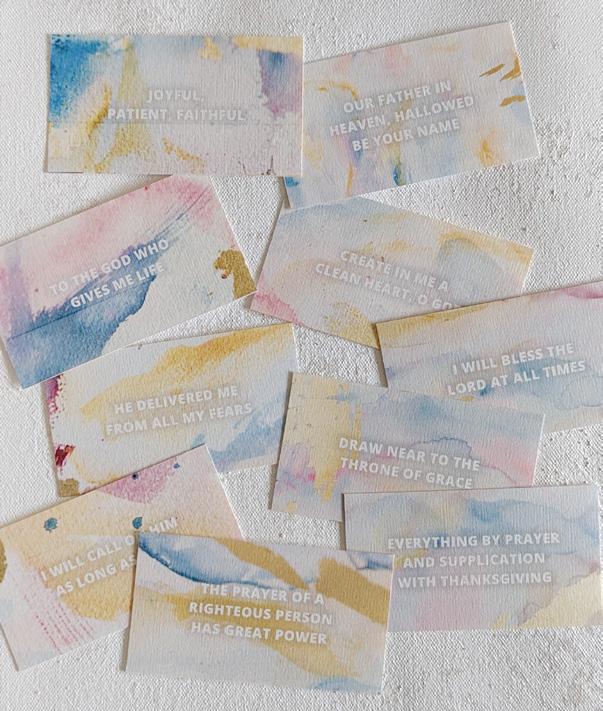 JOYFUL,
PATIENT, FAITHFUL
OUR FATHER IN
HEAVEN, HALLOWED
BE YOUR NAME
TO THE GOD WHO
GIVES ME LIFE
CREATE IN ME A
CLEAN HEART, O
I WILL BLESS THE
LORD AT ALL TIMES
HE DELIVERED ME
FROM ALL MY FEARS
DRAW NEAR TO THE
THRONE OF GRACE
I WILL CALL HIM
AS LONG AS
EVERYTHING BY PRAYER
AND SUPPLICATION
WITH THANKSGIVING
THE PRAYER OF A
RIGHTEOUS PERSON
HAS GREAT POWER